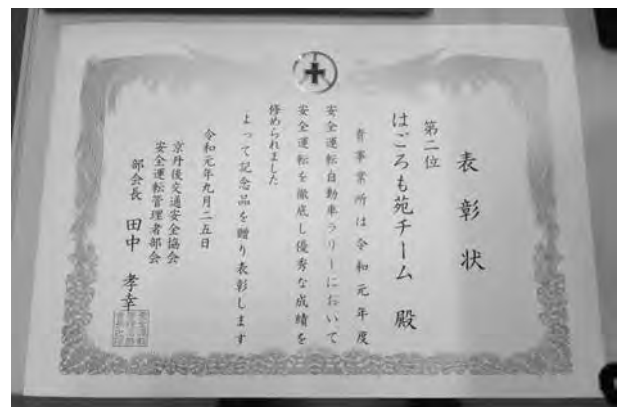 表彰状
第二位
はごろも苑チーム 殿
貴事業所は令和元年度
安全運転自動車ラリーにおいて
安全運転を徹底し優秀な成績を
修められました
よって記念品を贈り表彰します
令和元年九月二五日
京丹後交通安全協会
安全運転管理者部会
部会長 田中 孝幸